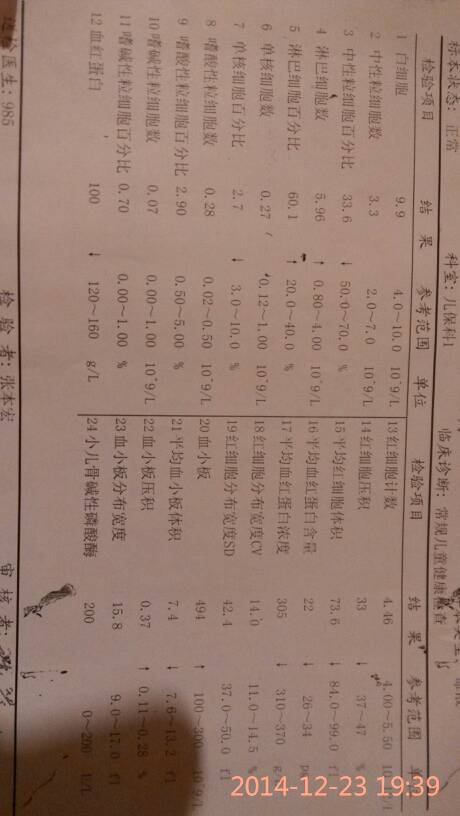 标本状态: 正常
科室: 儿保科1
临床诊断: 常规儿童健康检查
检验项目 结 果 参考范围 单位
1 白细胞 9.9 4.0~10.0 10^9/L
2 中性粒细胞数 3.3 2.0~7.0 10^9/L
3 中性粒细胞百分比 33.6 ↓ 50.0~70.0 %
4 淋巴细胞数 5.96 ↑ 0.80~4.00 10^9/L
5 淋巴细胞百分比 60.1 ↑ 20.0~40.0 %
6 单核细胞数 0.27 0.12~1.00 10^9/L
7 单核细胞百分比 2.7 ↓ 3.0~10.0 %
8 嗜酸性粒细胞数 0.28 0.02~0.50 10^9/L
9 嗜酸性粒细胞百分比 2.90 0.50~5.00 %
10 嗜碱性粒细胞数 0.07 0.00~1.00 10^9/L
11 嗜碱性粒细胞百分比 0.70 0.00~1.00 %
12 血红蛋白 100 ↓ 120~160 g/L
检验项目 结 果 参考范围
13 红细胞计数 4.46 4.00~5.50
14 红细胞压积 33 ↓ 37~47 %
15 平均红细胞体积 73.6 ↓ 84.0~99.0 fl
16 平均血红蛋白含量 22 ↓ 26~34
17 平均血红蛋白浓度 305 ↓ 310~370
18 红细胞分布宽度CV 14.0 11.0~14.5 %
19 红细胞分布宽度SD 42.4 37.0~50.0 fl
20 血小板 494 ↑ 100~300 10^9/L
21 平均血小板体积 7.4 ↓ 7.6~13.2 fl
22 血小板压积 0.37 ↑ 0.11~0.28 %
23 血小板分布宽度 15.8 9.0~17.0 fl
24 小儿骨碱性磷酸酶 200 0~200 U/L
送检医生: 985
检 验 者: 张本宏
审 核 者:
2014-12-23 19:39